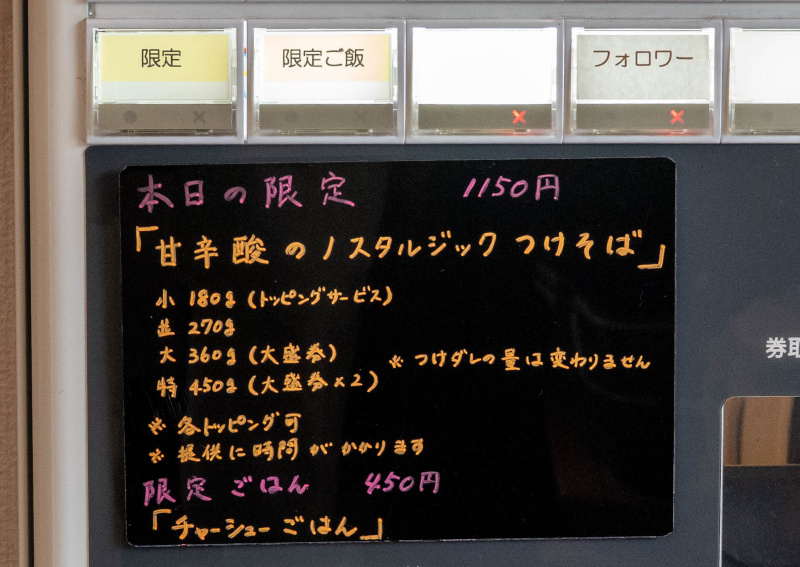 限定 限定ご飯 フォロワー
本日の限定 1150円
「甘辛酸のノスタルジックつけそば」
小 180g (トッピングサービス)
並 270g
大 360g (大盛券)
※ つけダレの量は変わりません
特 450g (大盛券×2)
※ 各トッピング可
※ 提供に時間がかかります
限定ごはん 450円
「チャーシューごはん」
券取